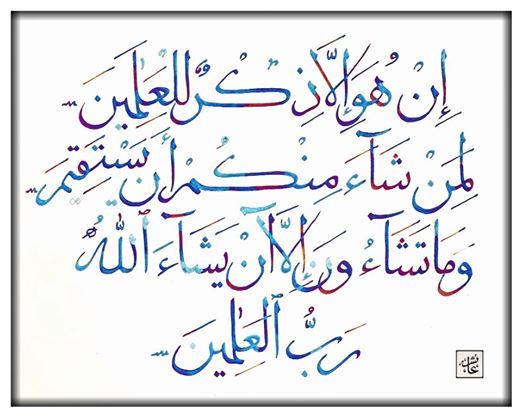 إِنْ هُوَ إِلَّا ذِكْرٌ لِلْعَٰلَمِينَ
لِمَنْ شَآءَ مِنكُمْ أَن يَسْتَقِيمَ
وَمَا تَشَآءُونَ إِلَّآ أَنْ يَشَآءَ ٱللَّهُ
رَبُّ ٱلْعَٰلَمِينَ